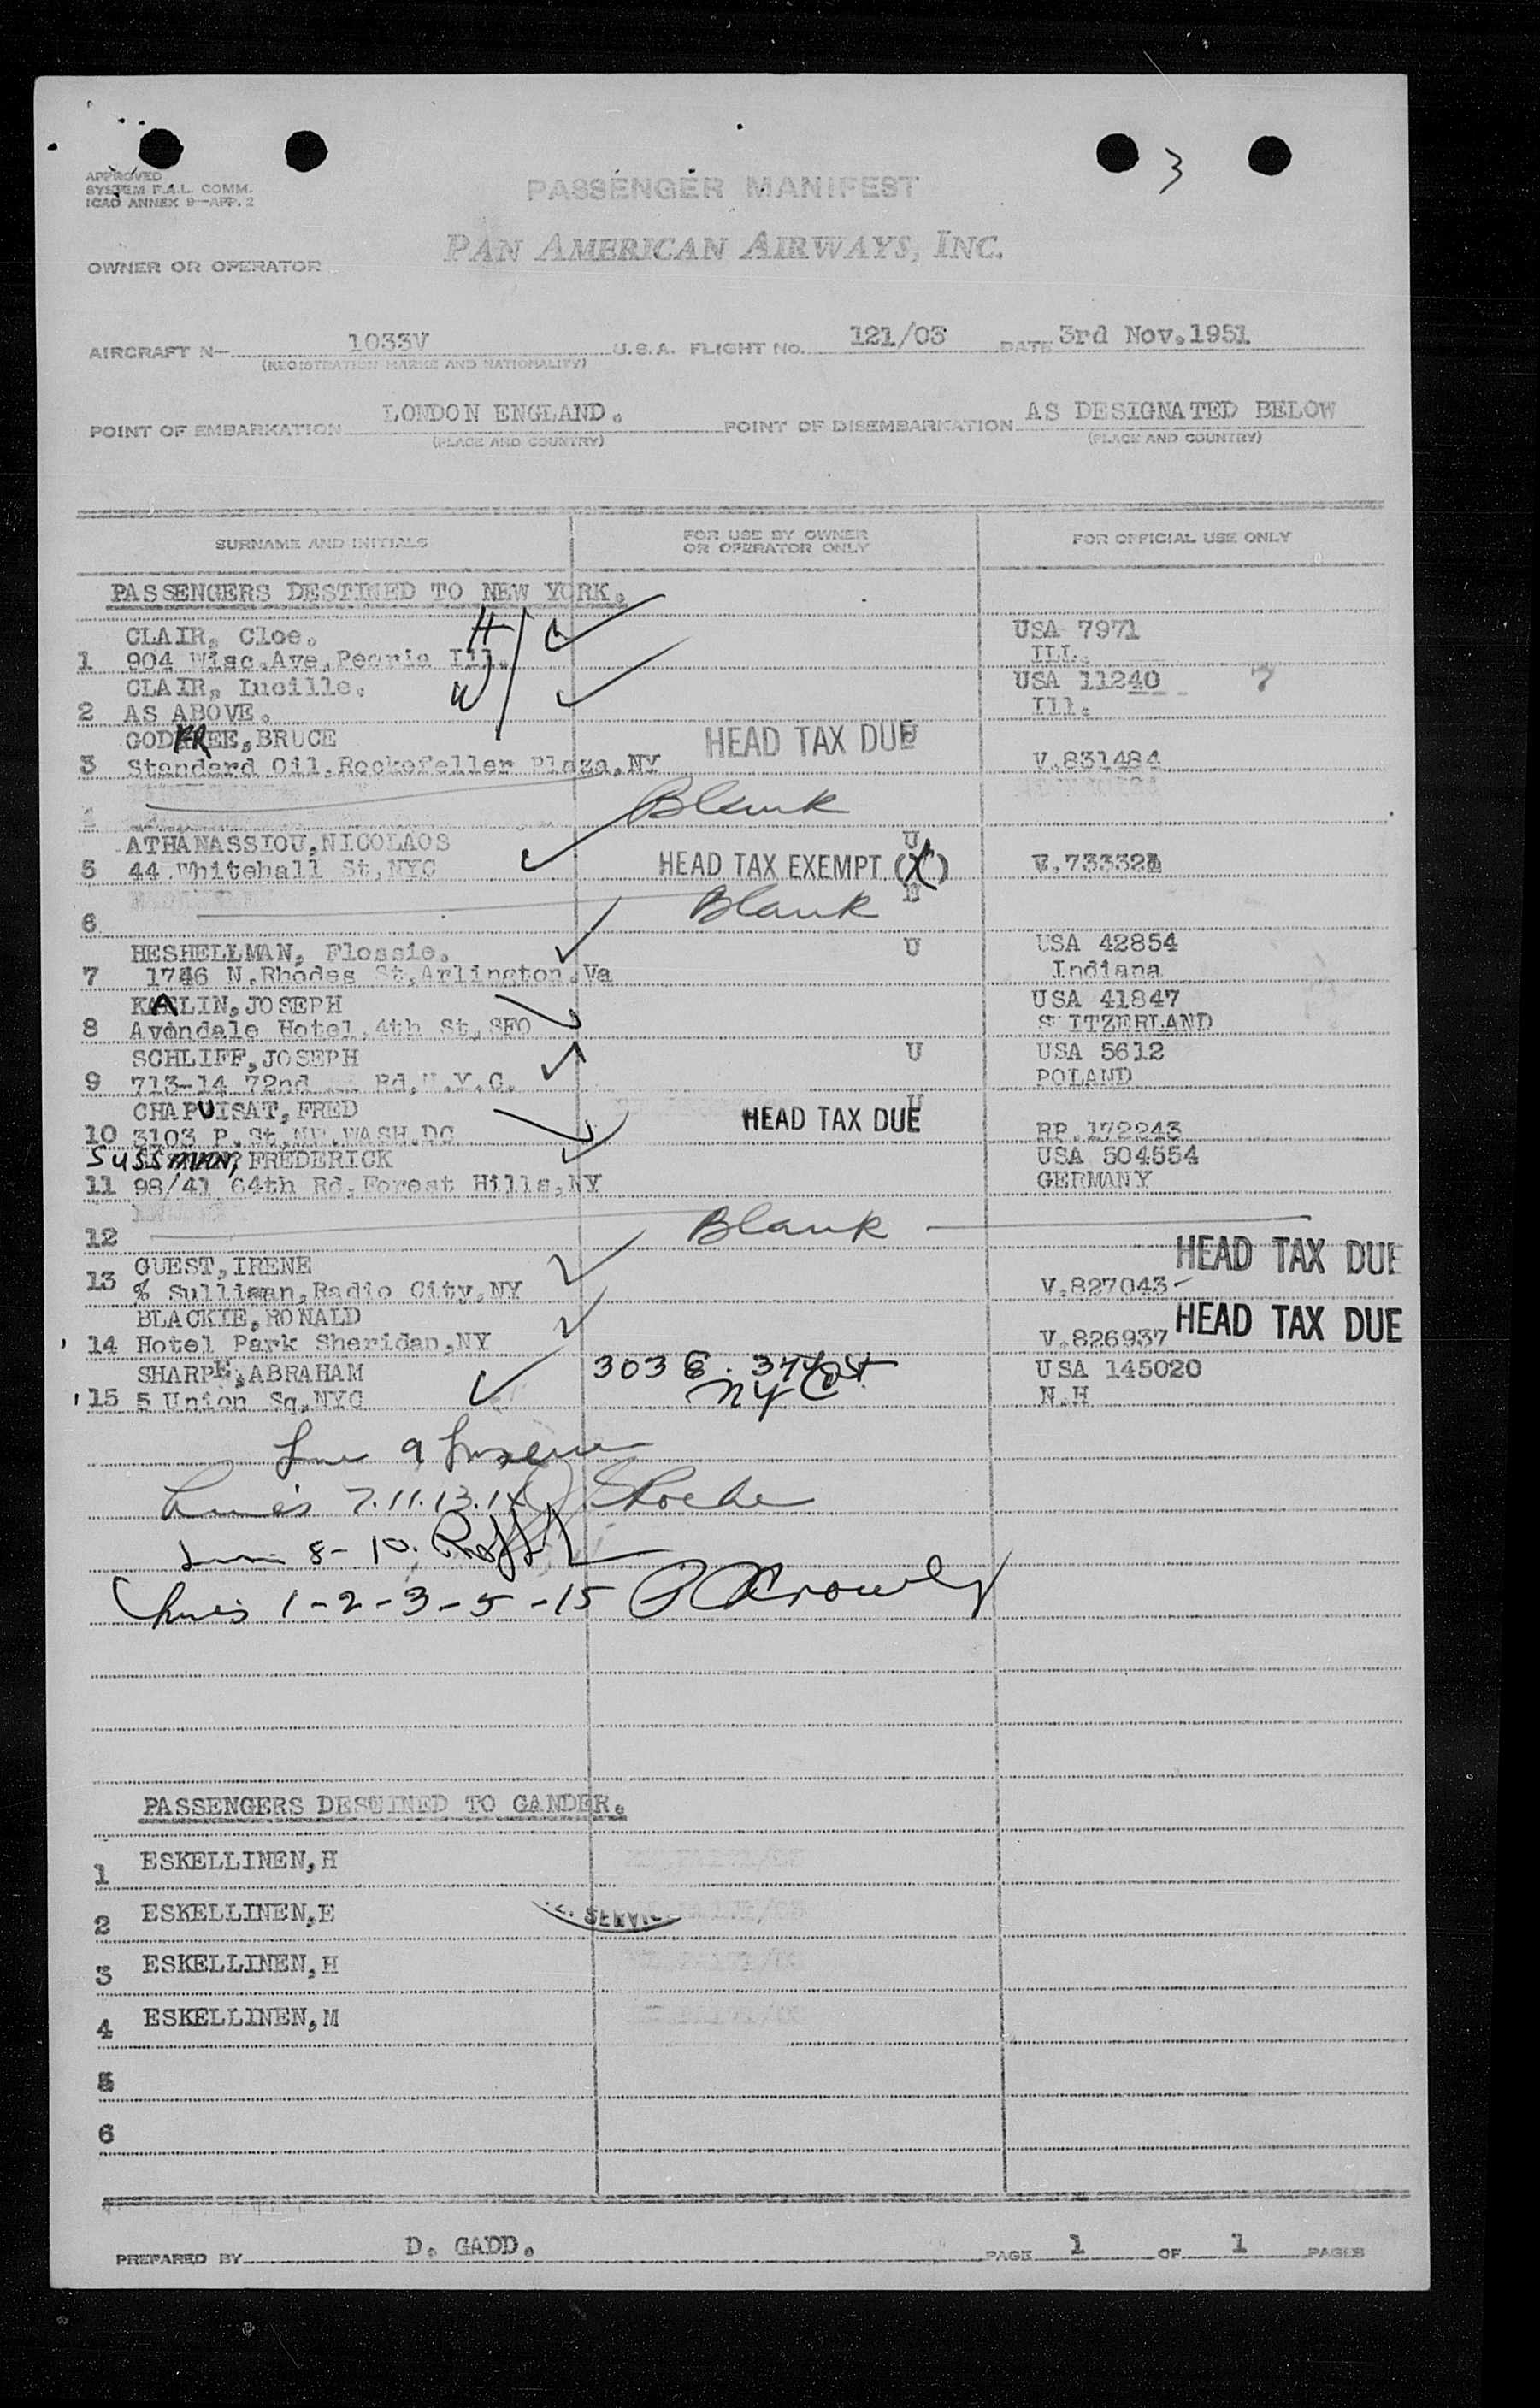 3
APPROVED
SYSTEM F.A.L. COMM.
ICAO ANNEX 9—APP. 2
PASSENGER MANIFEST
PAN AMERICAN AIRWAYS, INC.
OWNER OR OPERATOR
AIRCRAFT N— 1033V U.S.A. FLIGHT NO. 121/03 DATE 3rd Nov.1951
(REGISTRATION MARKS AND NATIONALITY)
POINT OF EMBARKATION LONDON ENGLAND. POINT OF DISEMBARKATION AS DESIGNATED BELOW
(PLACE AND COUNTRY) (PLACE AND COUNTRY)
SURNAME AND INITIALS FOR USE BY OWNER OR OPERATOR ONLY FOR OFFICIAL USE ONLY
PASSENGERS DESTINED TO NEW YORK.
CLAIR, Cloe. H USA 7971
1 904 Wisc.Ave.Peoria Ill. ILL.
CLAIR, Lucille. W USA 11240 7
2 AS ABOVE. Ill.
GODFREE,BRUCE HEAD TAX DUE U
3 Standard Oil.Rockefeller Plaza,NY V.831484
4 Blank
ATHANASSIOU,NICOLAOS U
5 44 Whitehall St,NYC HEAD TAX EXEMPT (X) V.73332
6 Blank
HESHELLMAN, Flossie. U USA 42854
7 1746 N.Rhodes St,Arlington.Va Indiana
KAALIN,JOSEPH USA 41847
8 Avondale Hotel.4th St,SFO SWITZERLAND
SCHLIFF,JOSEPH U USA 5612
9 713-14 72nd Rd,N.Y.C. POLAND
CHAPUISAT,FRED HEAD TAX DUE U
10 3103 P.St,NW.WASH.DC RP.172243
SUSSMAN, FREDERICK USA 504554
11 98/41 64th Rd.Forest Hills,NY GERMANY
12 Blank
GUEST,IRENE HEAD TAX DUE
13 % Sullivan,Radio City,NY V.827043
BLACKIE,RONALD HEAD TAX DUE
14 Hotel Park Sheridan,NY V.826937
SHARPE,ABRAHAM 303 E. 37th St USA 145020
15 5 Union Sq,NYC NYC N.H
Line 9
Lines 7.11.13.14
8-10.
Lines 1-2-3-5-15 Crowley
PASSENGERS DESTINED TO GANDER.
1 ESKELLINEN,H
2 ESKELLINEN,E
3 ESKELLINEN,H
4 ESKELLINEN,M
5
6
PREPARED BY D. GADD. PAGE 1 OF 1 PAGES